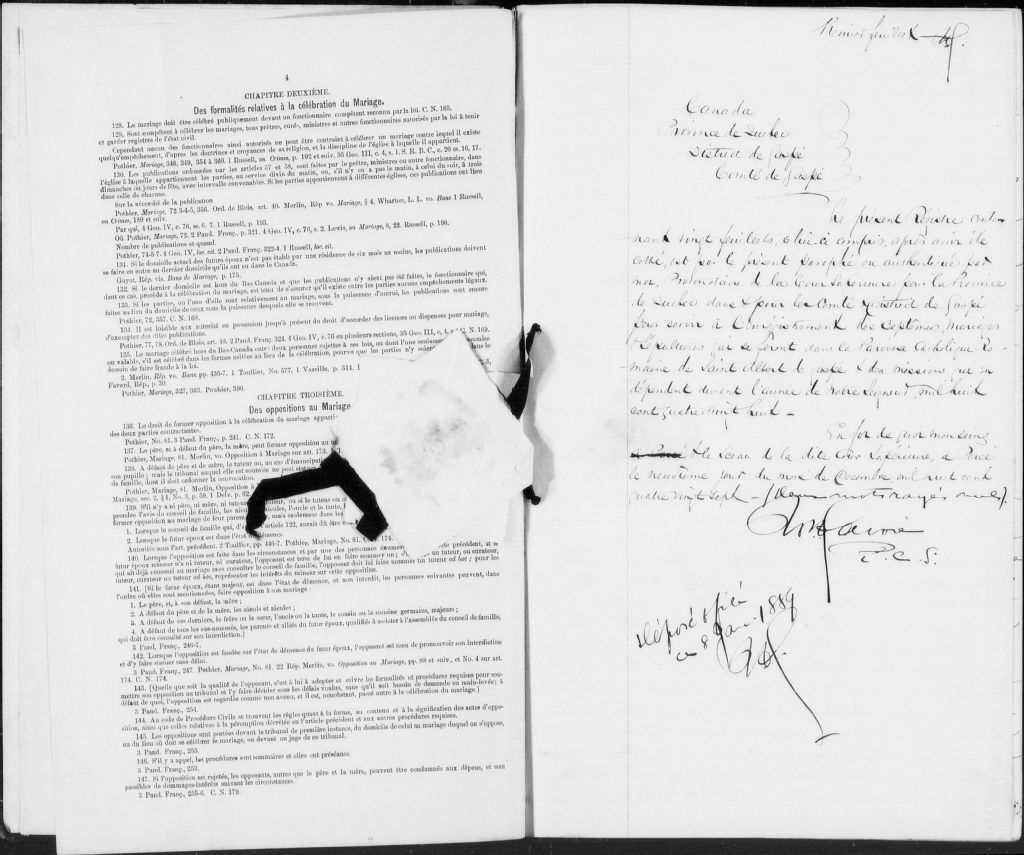 4
CHAPITRE DEUXIÈME.
Des formalités relatives à la célébration du Mariage.
128. Le mariage doit être célébré publiquement devant un fonctionnaire compétent reconnu par la loi. C. N. 165.
129. Sont compétents à célébrer les mariages, tous prêtres, curés, ministres et autres fonctionnaires autorisés par la loi à tenir
et garder registres de l'état civil.
Cependant aucun des fonctionnaires ainsi autorisés ne peut être contraint à célébrer un mariage contre lequel il existe
quelqu'empêchement, d'après les doctrines et croyances de sa religion, et la discipline de l'église à laquelle il appartient.
Pothier, Mariage, 346, 349, 354 à 360. 1 Russell, on Crimes, p. 192 et suiv. 35 Geo. III, c. 4, s. 1. S. R. B. C., c. 20 ss. 16, 17.
130. Les publications ordonnées par les articles 57 et 58, sont faites par le prêtre, ministre ou autre fonctionnaire, dans
l'église à laquelle appartiennent les parties, au service divin du matin, ou, s'il n'y en a pas le matin, à celui du soir, à trois
dimanches ou jours de fête, avec intervalle convenable. Si les parties appartiennent à différentes églises, ces publications ont lieu
dans celle de chacune.
Sur la nécessité de la publication
Pothier, Mariage, 72 3-4-5, 356. Ord. de Blois, art. 40. Merlin, Rép vo. Mariage, § 4. Wharton, L. L. vo. Bans 1 Russell,
on Crimes, 189 et suiv.
Par qui, 4 Geo. IV, c. 76, ss. 6, 7. 1 Russell, p. 193.
Où Pothier, Mariage, 72. 2 Pand. Franç. p. 321. 4 Geo IV, c. 76, s. 2. Lewis, on Mariage, 8, 22. Russell, p. 190.
Nombre de publications et quand.
Pothier, 74-5 7. 4 Geo. IV, loc. cit. 2 Pand. Franç. 322-4. 1 Russell, loc. cit.
131. Si le domicile actuel des futurs époux n'est pas établi par une résidence de six mois au moins, les publications doivent
se faire en outre au dernier domicile qu'ils ont eu dans le Canada.
Guyot, Rép. vis. Bans de Mariage, p. 175.
132. Si le dernier domicile est hors du Bas Canada et que les publications n'y aient pas été faites, le fonctionnaire qui,
dans ce cas, procède à la célébration du mariage, est tenu de s'assurer qu'il n'existe entre les parties aucuns empêchements légaux.
133. Si les parties, ou l'une d'elle sont relativement au mariage, sous la puissance d'autrui, les publications sont encore
faites au lieu du domicile de ceux sous la puissance desquels elle se trouvent.
Pothier, 72, 357. C. N. 168.
134. Il est loisible aux autorité en possession jusqu'à présent du droit d'accorder des licences ou dispenses pour mariage,
d'exempter des dites publications.
Pothier, 77, 78. Ord. de Blois, art. 40. 2 Pand Franç. 324. 4 Geo. IV, c. 76 en plusieurs sections, 35 Geo. III, c. 4, N. 169.
135. Le mariage célébré hors du Bas-Canada entre deux personnes sujettes à ses lois, ou dont l'une seulement
est valable, s'il est célébré dans les formes usitées au lieu de la célébration, pourvu que les parties n'y soient
dessein de faire fraude à la loi.
2. Merlin, Rép. vo. Bans, pp. 436-7. 1 Toullier, No. 577. 1 Vazeille, p. 314.
Favard, Rép., p. 30.
Pothier, Mariage, 327, 363. Pothier, 300.
CHAPITRE TROISIÈME.
Des oppositions au Mariage
136. Le droit de former opposition à la célébration du mariage
des deux parties contractantes.
Pothier, No. 81. 3 Pand. Franç., p. 241. C. N. 172.
137. Le père, et à défaut du père, la mère, peut former opposition au
Pothier, Mariage, 81. Merlin, vo. Opposition à Mariage sur art. 173.
138. A défaut de père et de mère, le tuteur ou, au cas d'émancipation
son pupille; mais le tribunal auquel elle est soumise ne peut
de famille, dont il doit ordonner la convocation.
Pothier, Mariage, 81. Merlin, Opposition à
Mariage, sec. 2, § 1, No. 3, p. 59. 1 Delv. p. 62.
139. S'il n'y a ni père, ni mère, ni
prendre l'avis du conseil de famille, les
former opposition au mariage de leur
1. Lorsque le conseil de famille qui, article 122, aurait dû être
2. Lorsque le futur époux est dans l'état démence.
Autorités sous l'art. précédent. 2 Toullier, pp. 446-7. Pothier, Mariage, No. 81. C. 174.
140. Lorsque l'opposition est faite dans les circonstances et par une des personnes précédent, si le
futur époux mineur n'a ni tuteur, ni curateur, l'opposant est tenu de lui en faire nommer un;
qui ait déjà consenti au mariage sans consulter le conseil de famille, l'opposant doit lui faire nommer un tuteur ad hoc; pour les
tuteur, curateur ou tuteur ad hoc, représenter les intérêts du mineur sur cette opposition.
141. [Si le futur époux, étant majeur, est dans l'état de démence, et non interdit, les personnes suivantes peuvent, dans
l'ordre où elles sont mentionnées, faire opposition à son mariage:
1. Le père, et, à son défaut, la mère;
2. A défaut du père et de la mère, les aïeuls et aïeules;
3. A défaut de ces derniers, le frère ou la sœur, l'oncle ou la tante, le cousin ou la cousine germains, majeurs;
4. A défaut de tous les sus-nommés, les parents et alliés du futur époux, qualifiés à assister à l'assemblée du conseil de famille,
qui doit être consulté sur son interdiction.]
3 Pand. Franç., 246-7.
142. Lorsque l'opposition est fondée sur l'état de démence du futur époux, l'opposant est tenu de promouvoir son interdiction
et d'y faire statuer sans délai.
3 Pand. Franç., 247. Pothier, Mariage, No. 81. 22 Rép. Merlin, vo. Opposition au Mariage, pp. 88 et suiv., et No. 4 sur art.
174. C. N. 174.
143. [Quelle que soit la qualité de l'opposant, c'est à lui à adopter et suivre les formalités et procédures requises pour sou-
mettre son opposition au tribunal et l'y faire décider sous les délais voulus, sans qu'il soit besoin de demande en main-levée; à
défaut de quoi, l'opposition est regardée comme non avenu, et il est, nonobstant, passé outre à la célébration du mariage.]
3 Pand. Franç., 254.
144. Au code de Procédure Civile se trouvent les règles quant à la forme, au contenu et à la signification des actes d'oppo-
sition, ainsi que celles relatives à la péremption décrétée en l'article précédent et aux autres procédures requises.
145. Les oppositions sont portées devant le tribunal de première instance, du domicile de celui au mariage duquel on s'oppose,
ou du lieu où doit se célébrer le mariage, ou devant un juge de ce tribunal.
3 Pand. Franç., 253.
146. S'il y a appel, les procédures sont sommaires et elles ont préséance.
3 Pand. Franç., 253.
147. Si l'opposition est rejetée, les opposants, autres que le père et la mère, peuvent être condamnés aux dépens, et sont
passibles de dommages-intérêts suivant les circonstances.
3 Pand. Franç., 255-6. C. N. 179.
feuillet
Canada
Province de Québec
District de Gaspé
Comté de Gaspé
Le présent Régistre conte-
nant vingt feuillets, celui-ci compris, après avoir été
cotté, est par le présent paraphé ou authentiqué par
moi, Protonotaire de la Cour Supérieure pour la Province
de Québec dans & pour les Comté & district de Gaspé
pour servir à l'enrégistrement des Baptêmes, Mariages
& Sépultures qui se feront dans la Paroisse Catholique Ro-
maine de Saint Albert de Gaspé & des missions qui en
dépendent durant l'année de notre Seigneur mil huit
cent quatre vingt huit –
En foi de quoi mon seing
& le sceau de la dite Cour Supérieure, à Percé
le neuvième jour du mois de Décembre mil huit cent
quatre vingt sept – (Deux mots rayés nuls).
P. C. S.
Déposé & filé
ce 8 Jan. 1889